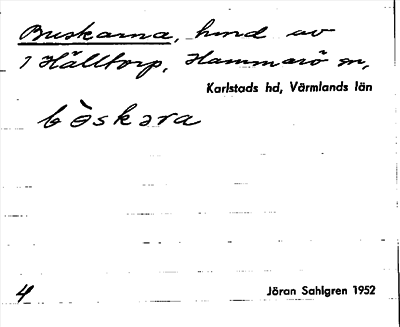 Buskarna, hmd av
1 Hälltorp, Hammarö sn,
Karlstads hd, Värmlands län
bòskara
4
Jöran Sahlgren 1952